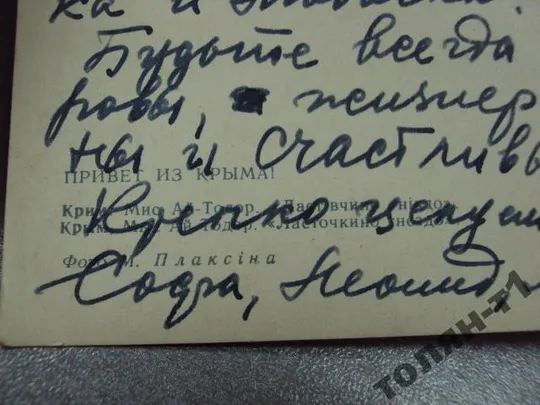 ка и
Будьте всегда
ровы, жизнер
ны и счастливы
ПРИВЕТ ИЗ КРЫМА!
Крим. Мис Ай-Тодор. «Ластівчине гніздо»
Крепко целуем
Крим. М. Ай-Тодор. "Ласточкино гнездо"
Фото М. Плаксіна
Софа, Леонид
ТОЛЯН-Т1